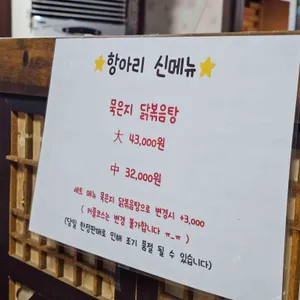 ⭐항아리 신메뉴⭐
묵은지 닭볶음탕
大 43,000원
中 32,000원
세트 메뉴 묵은지 닭볶음탕으로 변경시 +3,000
( 커플코스는 변경 불가합니다 ㅠ_ㅠ )
(당일 한정판매로 인해 조기 품절 될 수 있습니다)